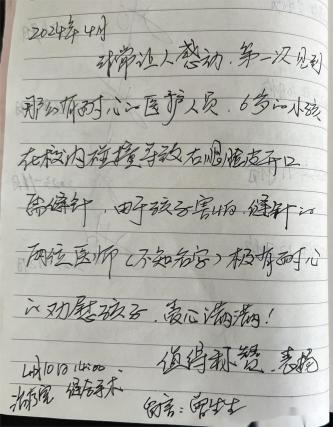 2024年4月
非常让人感动,第一次见到
那么有耐心的医护人员,6岁的小孩
在校内碰撞导致右眼脸皮开口
需缝针,由于孩子害怕,缝针的
两位医师(不知名字)极有耐心
的劝慰孩子,爱心满满!
值得称赞,表扬
4月10日 14:00
手术
留言: